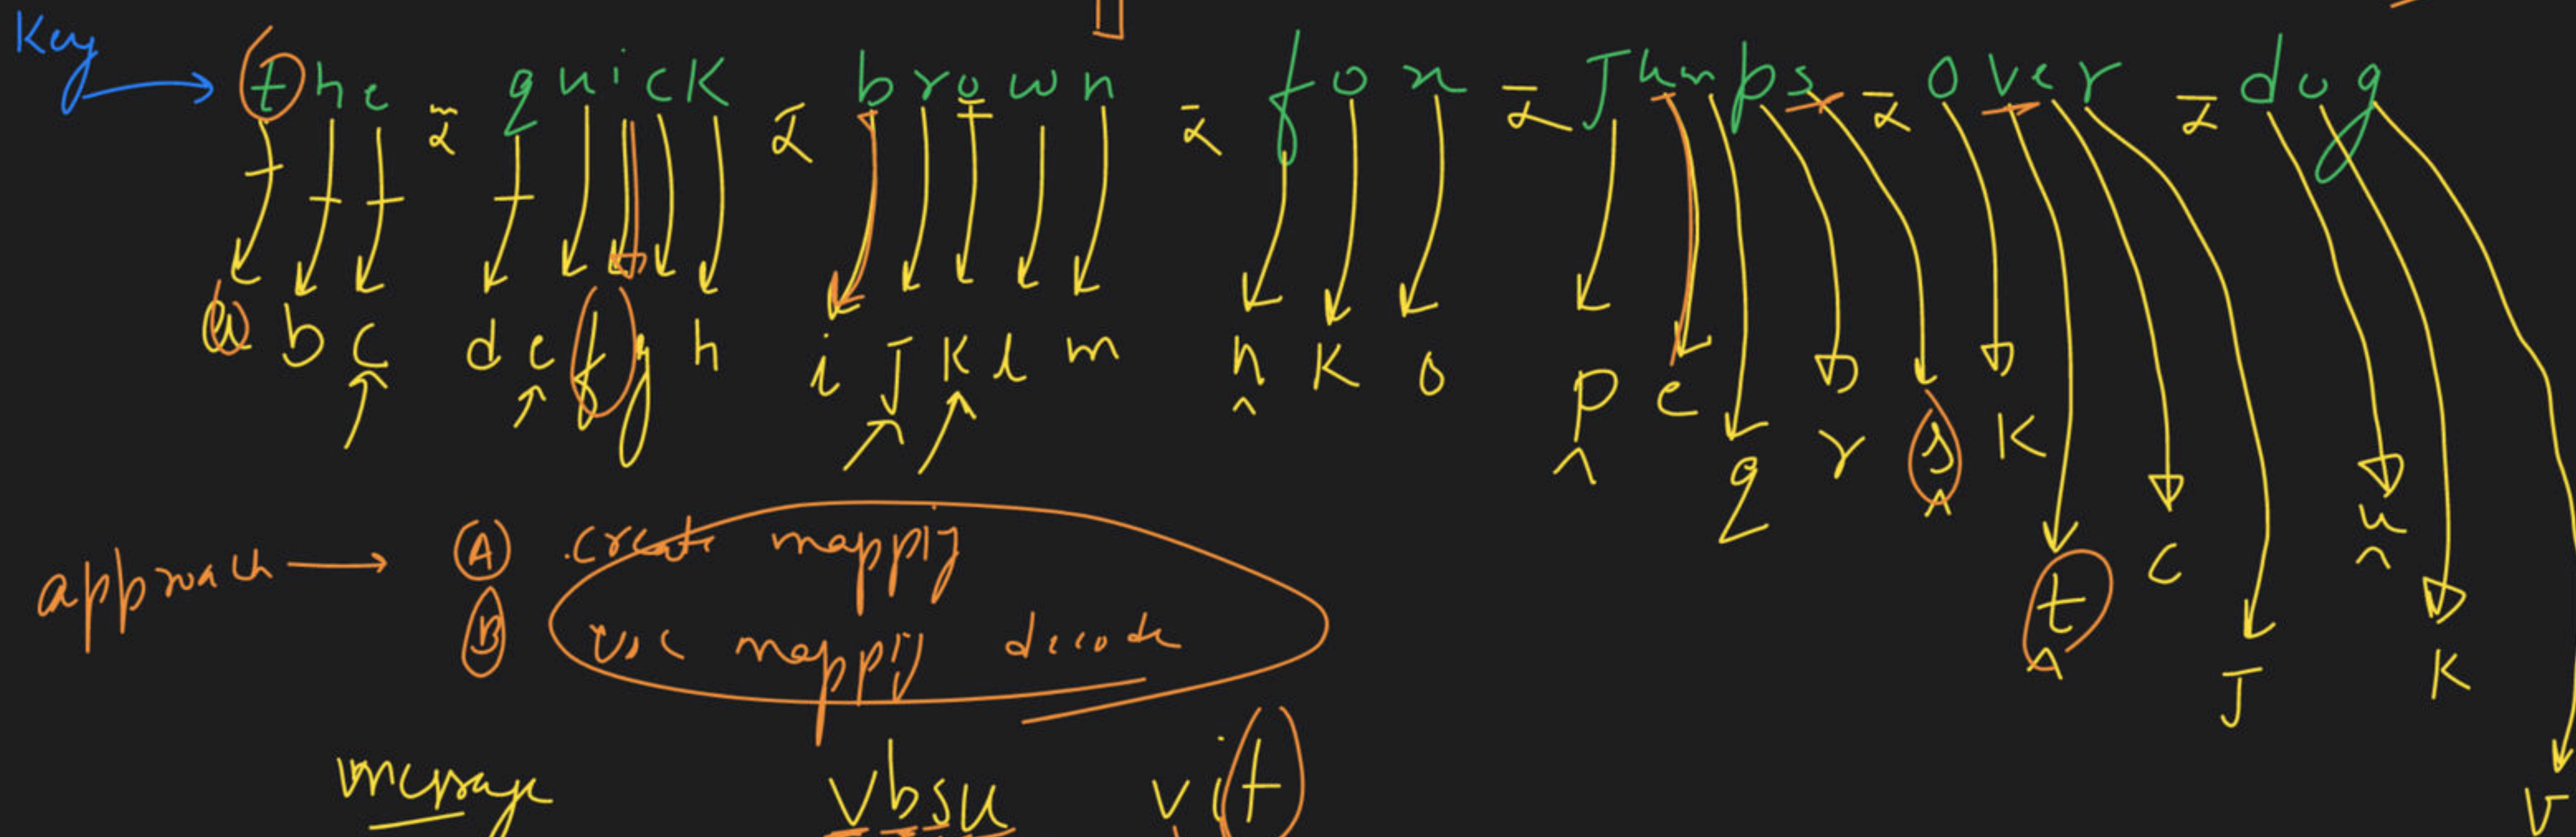 Key → the quick brown fox Jumps over dog
a b c d e f g h i J K l m n K o p e q r s K t c J u K v
approach → A create mapping
B use mapping decode
message vbsu vit